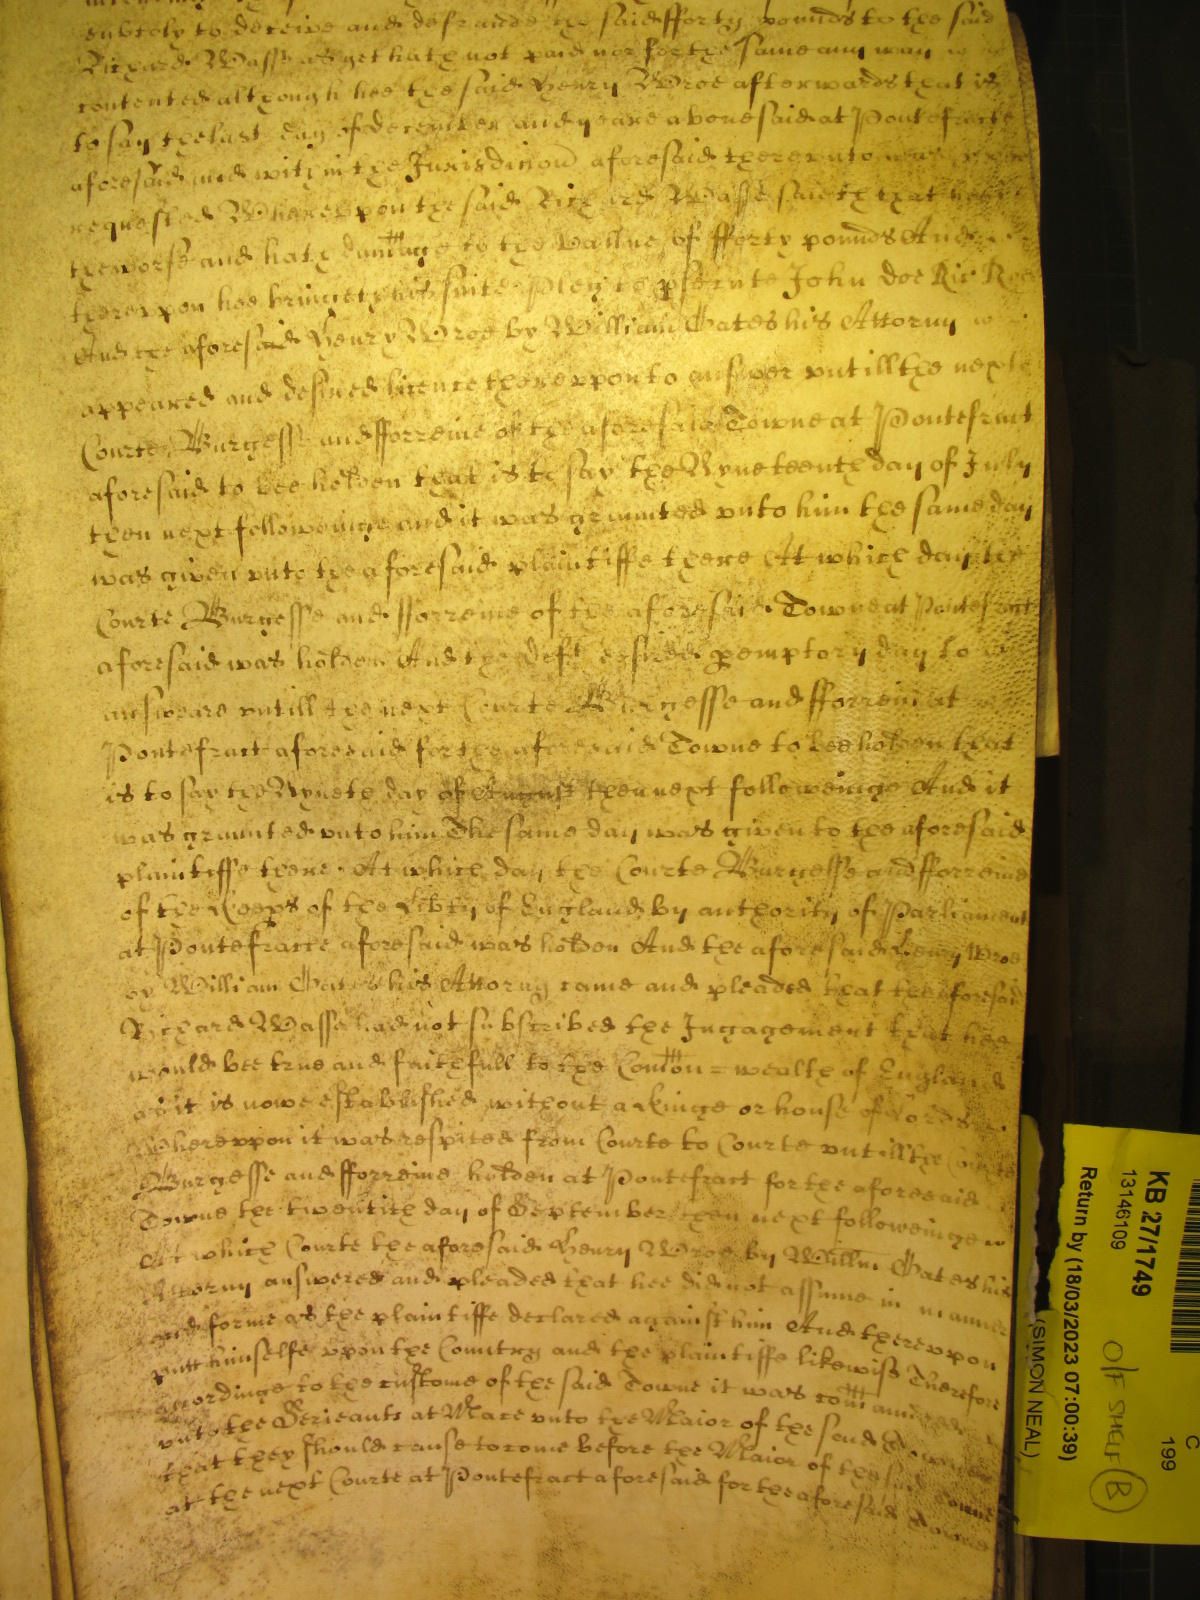 subtely to deceive and defraude the said fforty pounds to the said
Richard Wasse as yet hath not paid nor for the same any way
contented although hee the said Henry Wroe afterwards that is
to say the last day of december and yeare abovesaid at Pontefracte
aforesaid and within the Jurisdiction aforesaid thereunto was
requested Whereupon the said Richard Wasse saieth that hee is
the worse and hath dammage to the vallue of fforty pounds And
thereupon hee bringeth his suite Pleg to psecute John doe Ric Roe
And the aforesaid Henry Wroe by William Oates his Attorny
appeared and desired licence thereuppon to answer untill the next
Courte Burgesse and fforreine of the aforesaid Towne at Pontefract
aforesaid to bee holden that is to say the Nyneteenth day of July
then next followeinge and it was graunted unto him the same day
was given unto the aforesaid plaintiffe there At which day the
Courte Burgesse and fforreine of the aforesaid Towne at Pontefract
aforesaid was holden And the deft desired pemptory day to
answeare untill the next Courte Burgesse and fforrein at
Pontefract aforesaid for the aforesaid Towne to bee holden that
is to say the Nyneth day of August then next followeinge And it
was graunted unto him The same day was given to the aforesaid
plaintiffe there At which day the Courte Burgesse and fforreine
of the Keeps of the Libty of England by authority of Parliament
at Pontefracte aforesaid was holden And the aforesaid Henry Wroe
by William Oates his Attorny came and pleaded that the aforesaid
Richard Wasse had not subscribed the Ingagement that hee
would bee true and faithfull to the Comon=wealth of England
as it is nowe established without a Kinge or house of Lords
Whereuppon it was respited from Courte to Courte untill the Courte
Burgesse and fforreine holden at Pontefract for the aforesaid
Towne the twentith day of September then next followeinge
At which Courte the aforesaid Henry Wroe by Willm Oates his
Attorny answered and pleaded that hee did not assume in manner
and forme as the plaintiffe declared against him And thereuppon
putt himselfe uppon the Country and the plaintiffe likewise Therefore
accordinge to the custome of the said Towne it was comanded
unto the Serieants at Mace unto the Maior of the said Towne
that they should cause to come before the Maior of the said Towne
at the next Courte at Pontefract aforesaid for the aforesaid Towne
KB 27/1749
13146109
Return by (18/03/2023 07:00:39)
(SIMON NEAL)
C
199
O/F SHELF
B